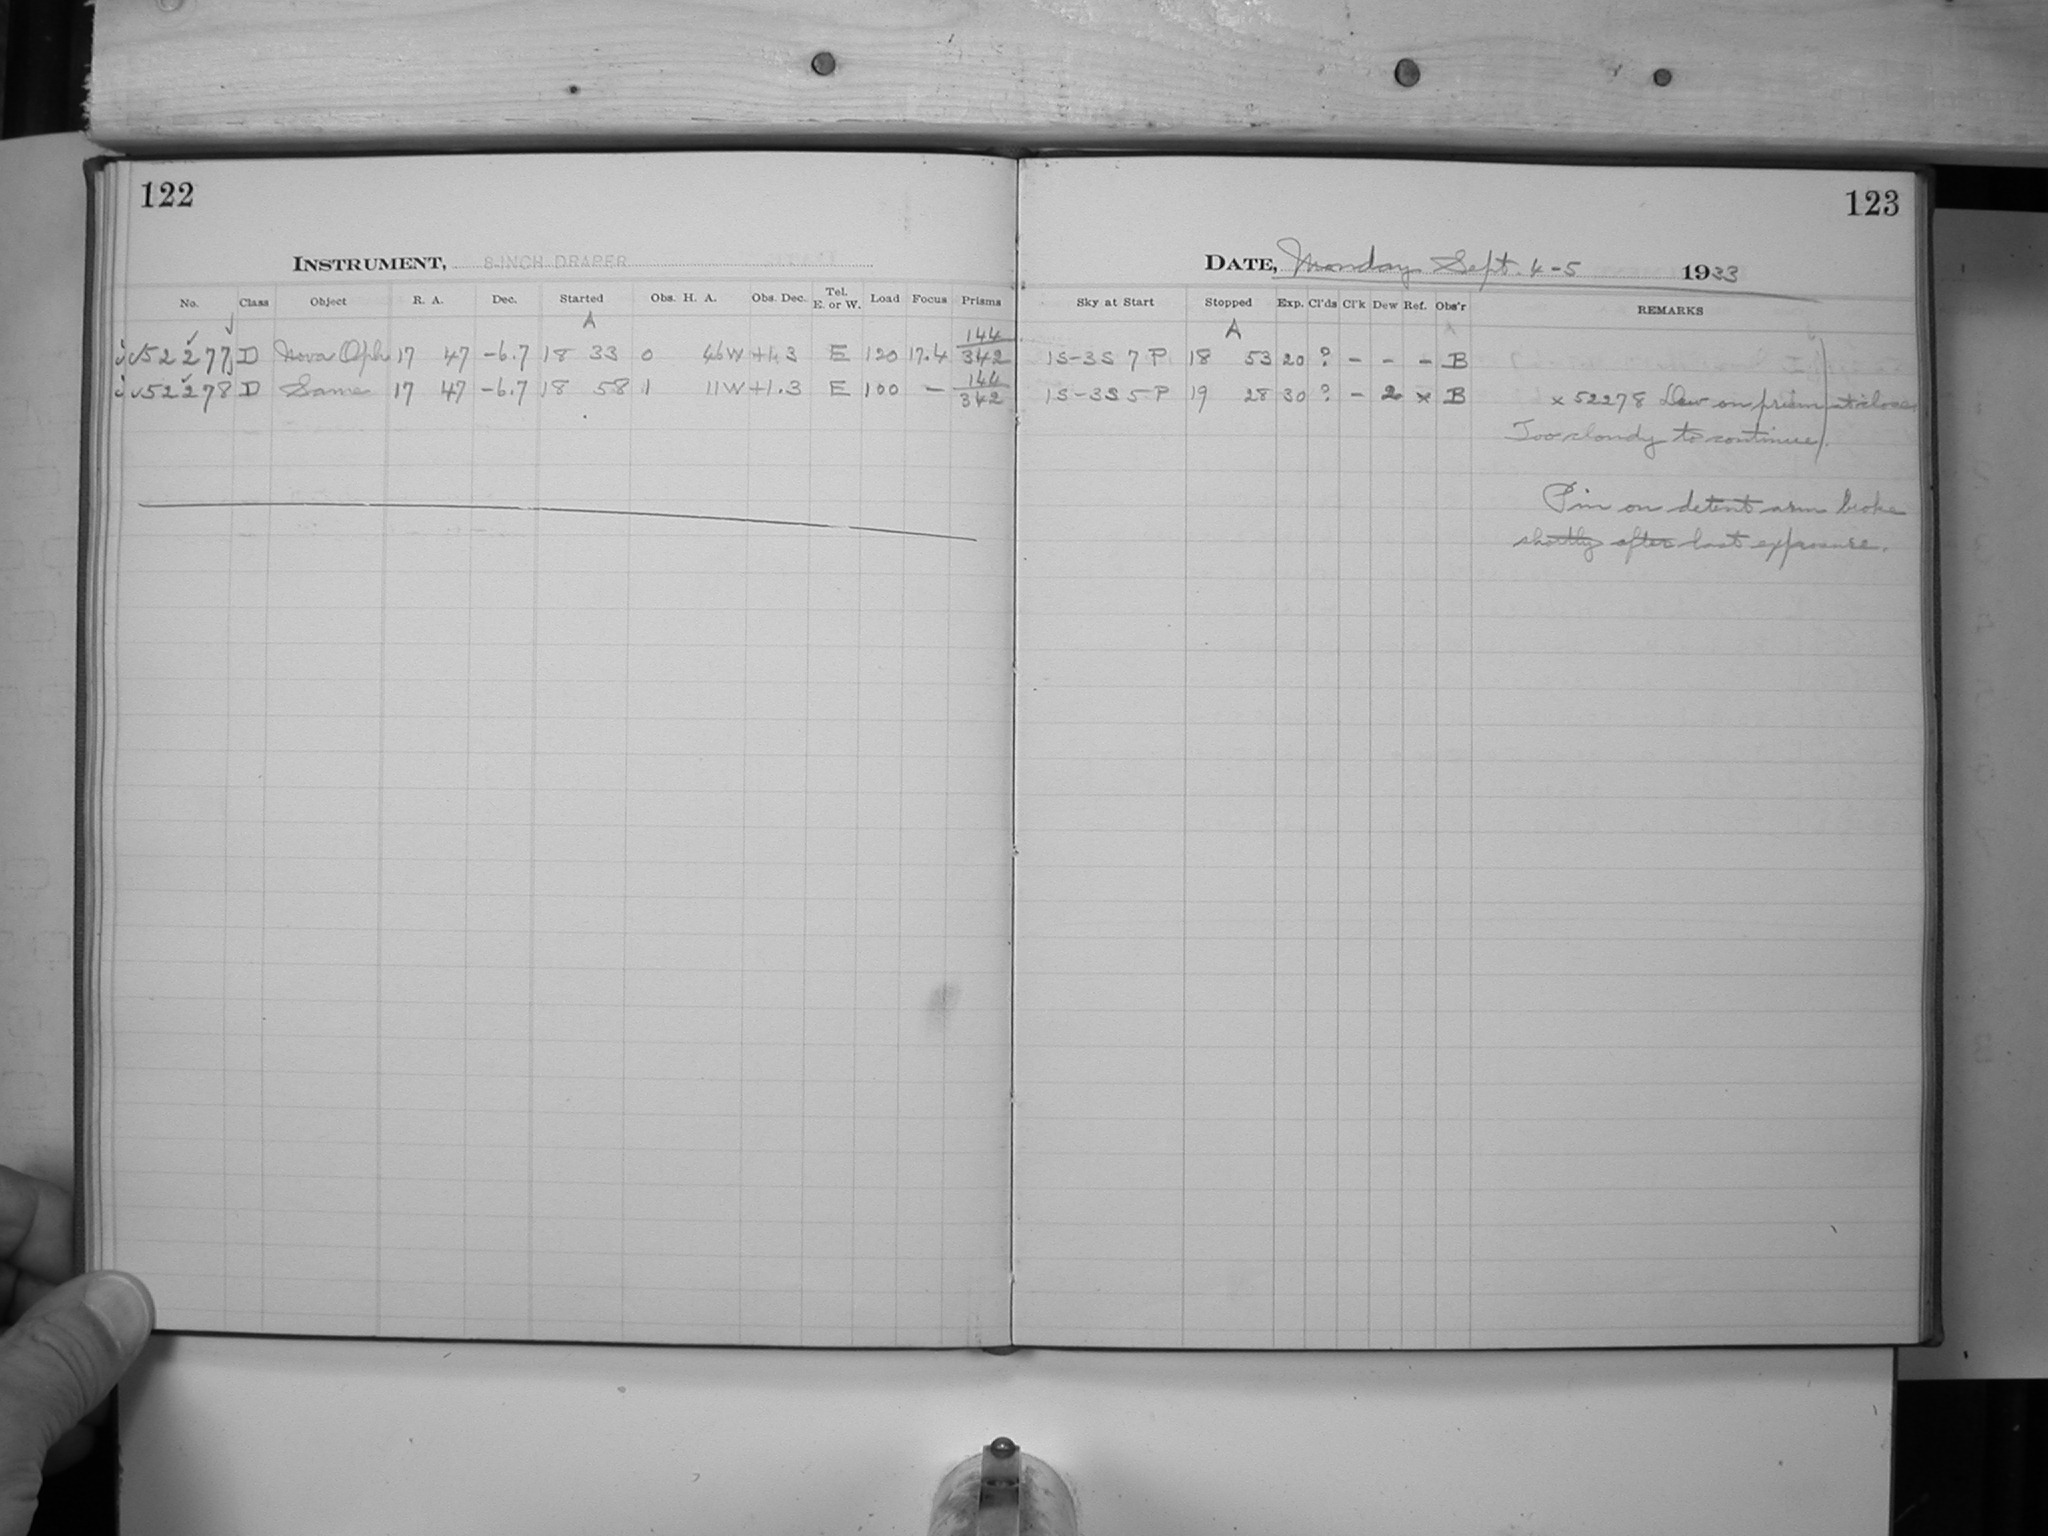 122
123
INSTRUMENT, 8-INCH DRAPER
DATE, Monday Sept. 4-5 1933
No. Class Object R. A. Dec. Started Obs. H. A. Obs. Dec. Tel. E. or W. Load Focus Prisms
Sky at Start Stopped Exp. Cl'ds Cl'k Dew Ref. Obs'r REMARKS
A
A
52277 D Nova Oph 17 47 -6.7 18 33 0 46W +1.3 E 120 17.4 144/342 1S-3S 7 P 18 53 20 ? - - - B
52278 D Same 17 47 -6.7 18 58 1 11W +1.3 E 100 - 144/342 1S-3S 5 P 19 28 30 ? - 2 x B x 52278 Dew on prism at close
Too cloudy to continue.
Pin on detent arm broke
shortly after last exposure.